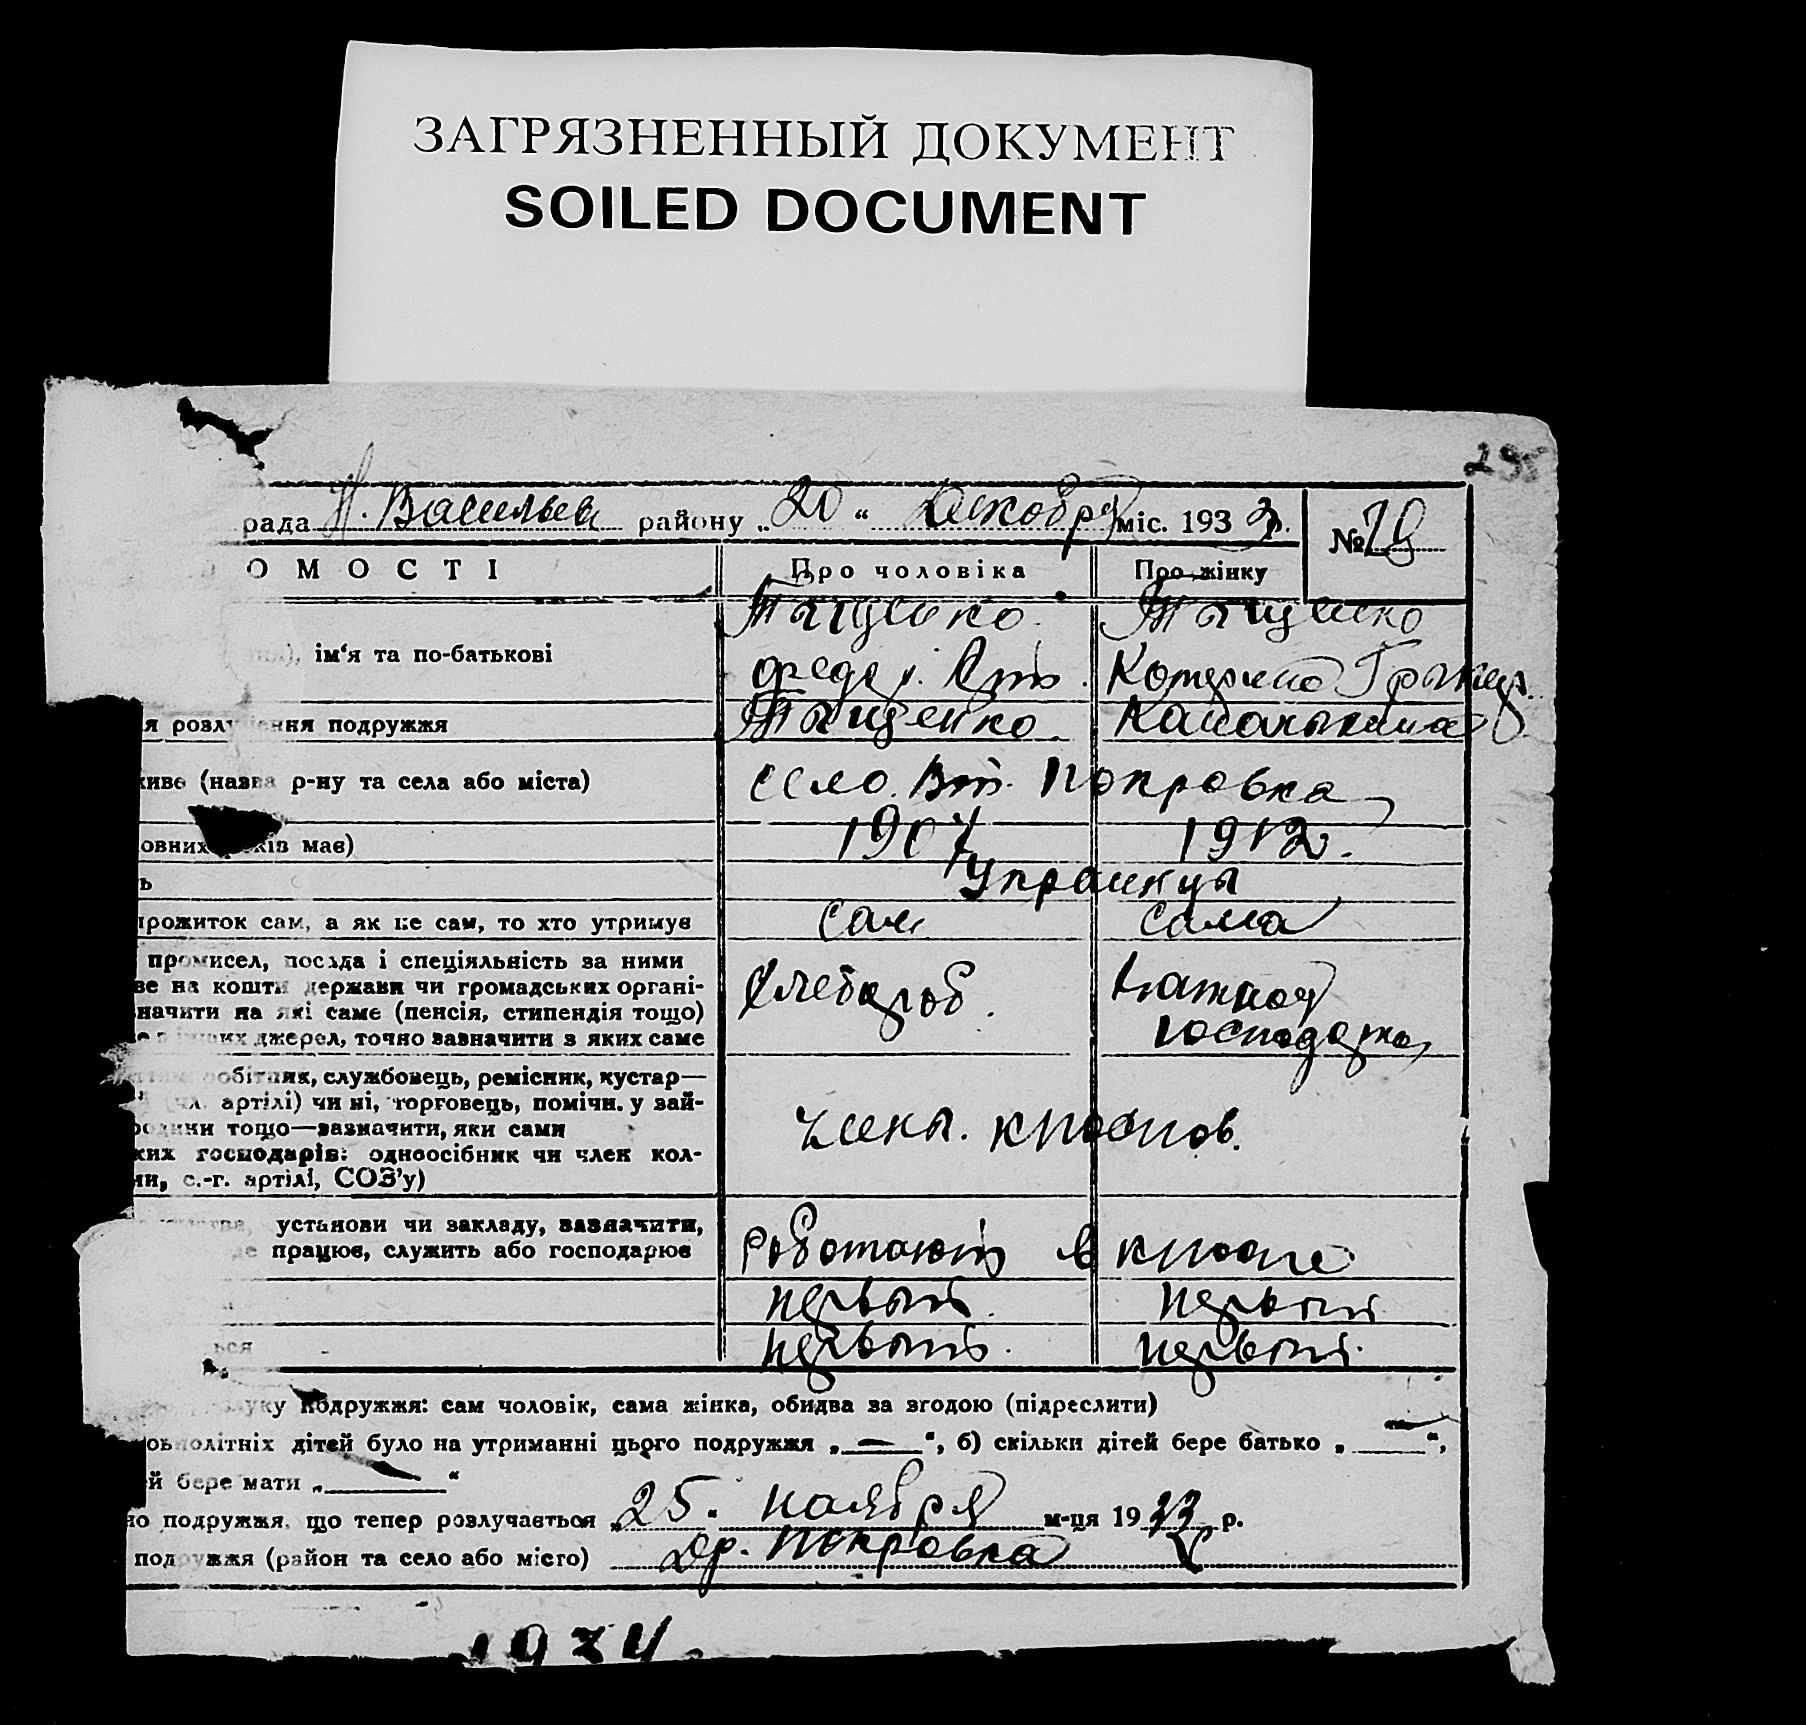 ЗАГРЯЗНЕННЫЙ ДОКУМЕНТ
SOILED DOCUMENT
рада Н. Васильев району „20“ Декобря міс. 1933 р. № 28
ОМОСТІ Про чоловіка Про жінку
Тыщенко Тыщенко
ім‘я та по-батькові Федер. Ант. Котерина
розлучення подружжя Тыщенко
живе (назва р-ну та села або міста) село. Вт. Покровка
овних років має) 1907 1912
ь Украинцы
прожиток сам, а як не сам, то хто утримує сам сама
промисел, посада і спеціяльність за ними
ве на кошти держави чи громадських органі- Хлебороб.
значити на які саме (пенсія, стипендія тощо) господарка
інших джерел, точно зазначити з яких саме
робітник, службовець, ремісник, кустар—
(чл. артілі) чи ні, торговець, помічн. у зай-
родини тощо—зазначити, яки сами члены.
ких господарів: одноосібник чи член кол-
ни, с.-г. артілі, СОЗ’у)
установи чи закладу, зазначити,
де працює, служить або господарює роботают в
первый. первый
ься первый. первый.
луку подружжя: сам чоловік, сама жінка, обидва за згодою (підреслити)
овнолітніх дітей було на утриманні цього подружжя „—“, б) скільки дітей бере батько „—“,
ей бере мати „—“
но подружжя, що тепер розлучається „25“ ноября м-ця 1933 р.
подружжя (район та село або місто) Др. Покровка
1934.